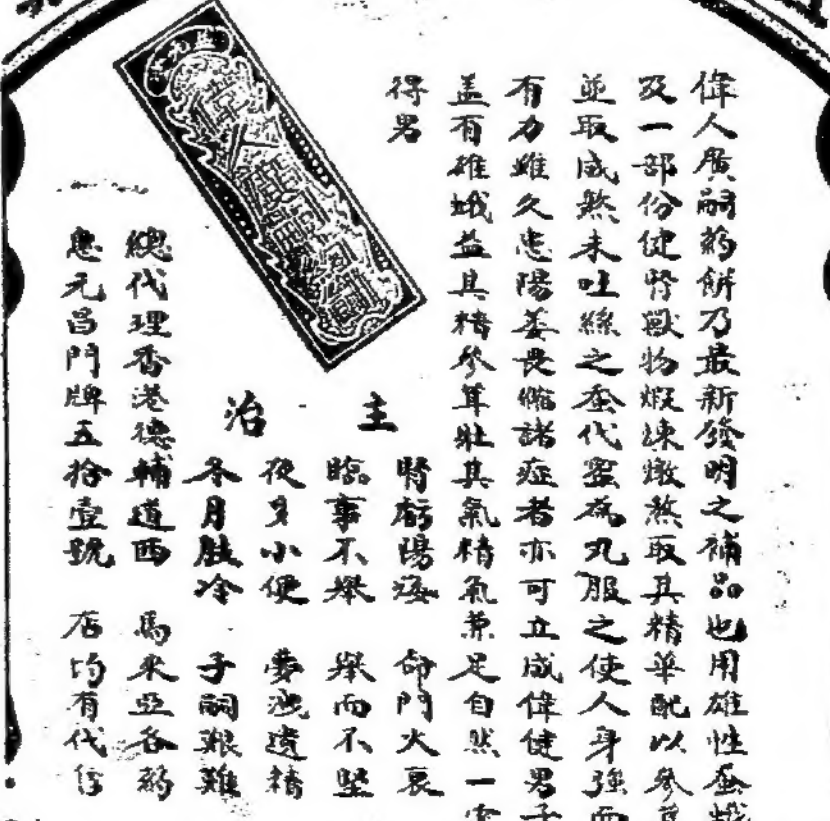 偉人廣嗣药餅乃最新發明之補品也用雄性蚕蛾
及一部份健腎獸物煆湅燉熬取其精華配以參茸
並取成熬未吐絲之蚕代蜜為丸服之使人身強而
有力雖久患陽萎畏縮諸症者亦可立成偉健男子
盖有雄蛾益其精參茸壯其氣精氣兼足自然一索
得男
主治
腎虧陽痿 命門火衰
臨事不舉 舉而不堅
夜多小便 夢洩遺精
冬月肢冷 子嗣艱難
總代理香港德輔道西 馬來亞各药
惠元昌門牌五拾壹號 店均有代售